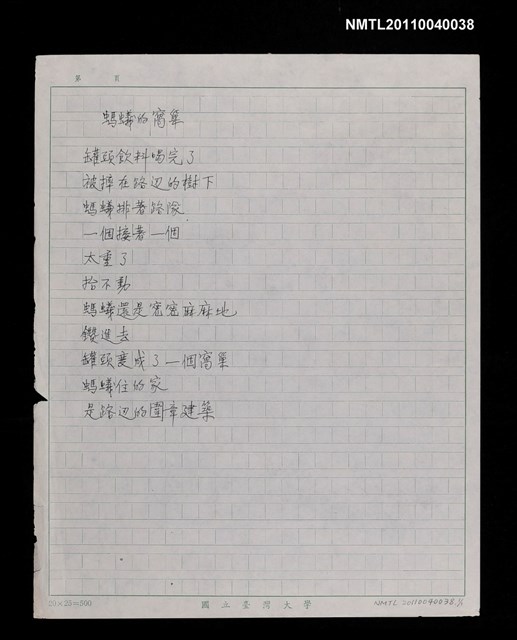 NMTL20110040038
第　頁
螞蟻的窩巢
罐頭飲料喝完了
被摔在路辺的樹下
螞蟻排著路隊
一個接著一個
太重了
抬不動
螞蟻還是密密麻麻地
鑽進去
罐頭変成了一個窩巢
螞蟻住的家
是路辺的違章建築
20×25=500
國立臺灣大學
NMTL 20110040038